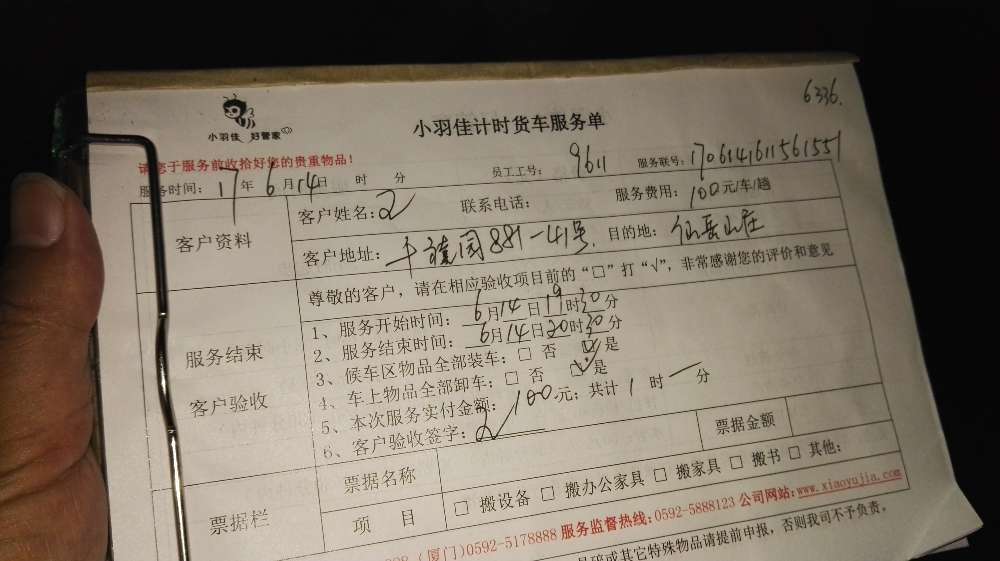 6336.
小羽佳 好管家
小羽佳计时货车服务单
请您于服务前收拾好您的贵重物品！
服务时间：17年6月14日 时 分 员工工号：9611 服务联号：1706141611561551
客户资料
客户姓名： 联系电话： 服务费用：100元/车/趟
客户地址：德园881-41号. 目的地：仙岳山庄
服务结束
客户验收
尊敬的客户，请在相应验收项目前的“□”打“√”，非常感谢您的评价和意见
1、服务开始时间：6月14日19时30分
2、服务结束时间：6月14日20时30分
3、候车区物品全部装车：□ 否 ☑ 是
4、车上物品全部卸车：□ 否 ☑ 是
5、本次服务实付金额：100元；共计1时一分
6、客户验收签字：
票据栏
票据名称 票据金额
项 目 □ 搬设备 □ 搬办公家具 □ 搬家具 □ 搬书 □ 其他：
（厦门）0592-5178888 服务监督热线：0592-5888123 公司网站：www.xiaoyujia.com
易碎或其它特殊物品请提前申报，否则我司不予负责。